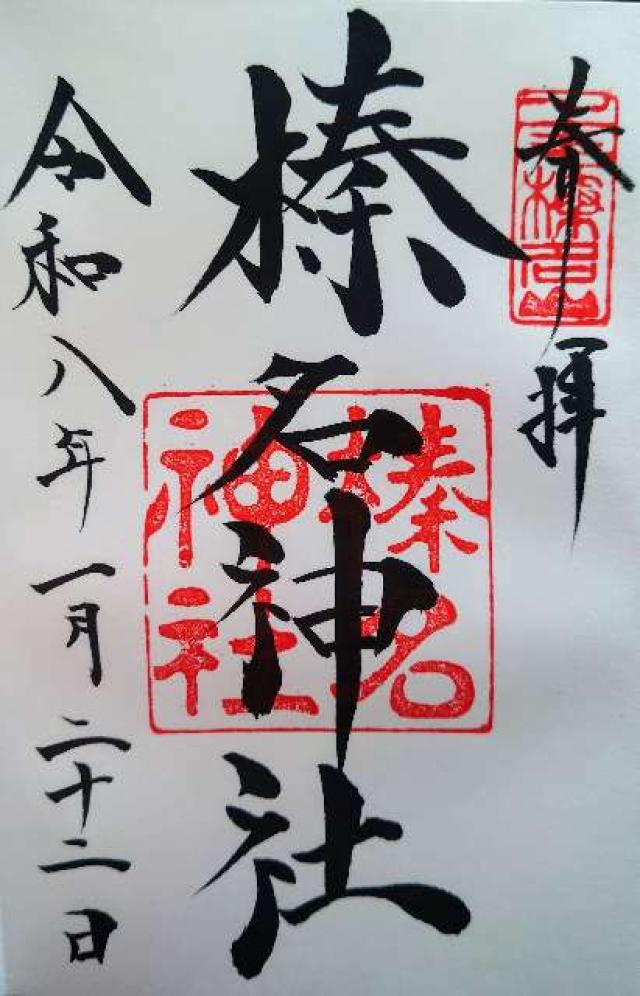 奉拝
榛名神社
榛名神社
令和八年一月二十二日